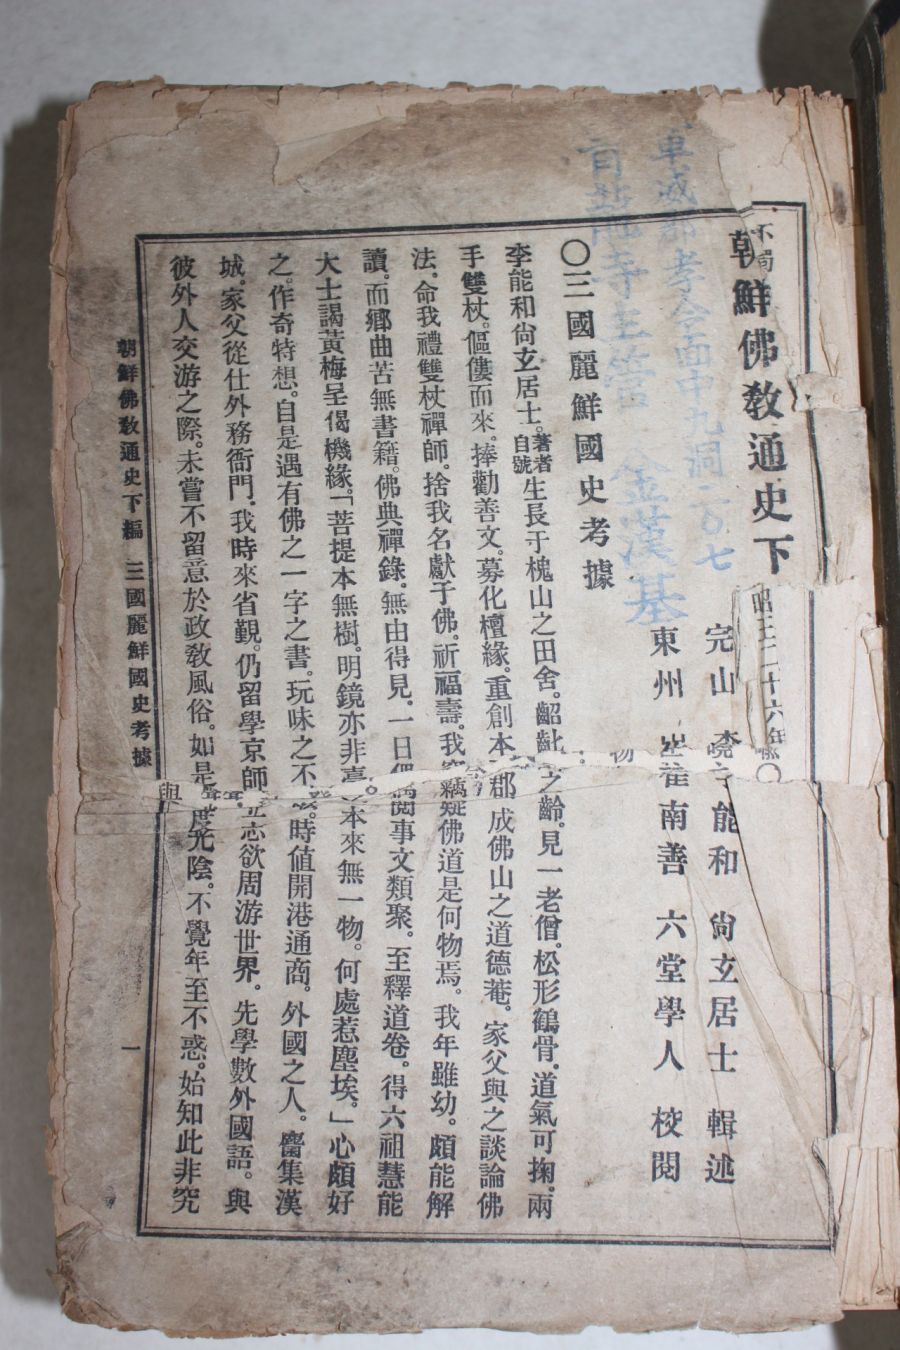 朝鮮佛敎通史下
完山 李能和 尙玄居士 輯述
東州 崔南善 六堂學人 校閱
〇三國麗鮮國史考據
李能和尙玄居士。著者自號生長于槐山之田舍。齠齔之齡。見一老僧。松形鶴骨。道氣可掬。兩
手雙杖。傴僂而來。捧勸善文。募化檀緣。重創本郡成佛山之道德菴。家父與之談論佛
法。命我禮雙杖禪師。捨我名獻于佛。祈福壽。我竊疑佛道是何物焉。我年雖幼。頗能解
讀。而鄕曲苦無書籍。佛典禪錄。無由得見。一日偶閱事文類聚。至釋道卷。得六祖慧能
大士謁黃梅呈偈機緣。「菩提本無樹。明鏡亦非臺。本來無一物。何處惹塵埃。」心頗好
之。作奇特想。自是遇有佛之一字之書。玩味之不 時値開港通商。外國之人。麕集漢
城。家父從仕外務衙門。我時來省覲。仍留學京師。立志欲周游世界。先學數外國語。與
彼外人交游之際。未嘗不留意於政敎風俗。如是 度光陰。不覺年至不惑。始知此非究
朝鮮佛敎通史下編 三國麗鮮國史考據
一
孝令面中九洞二〇七
寺主管 金漢基